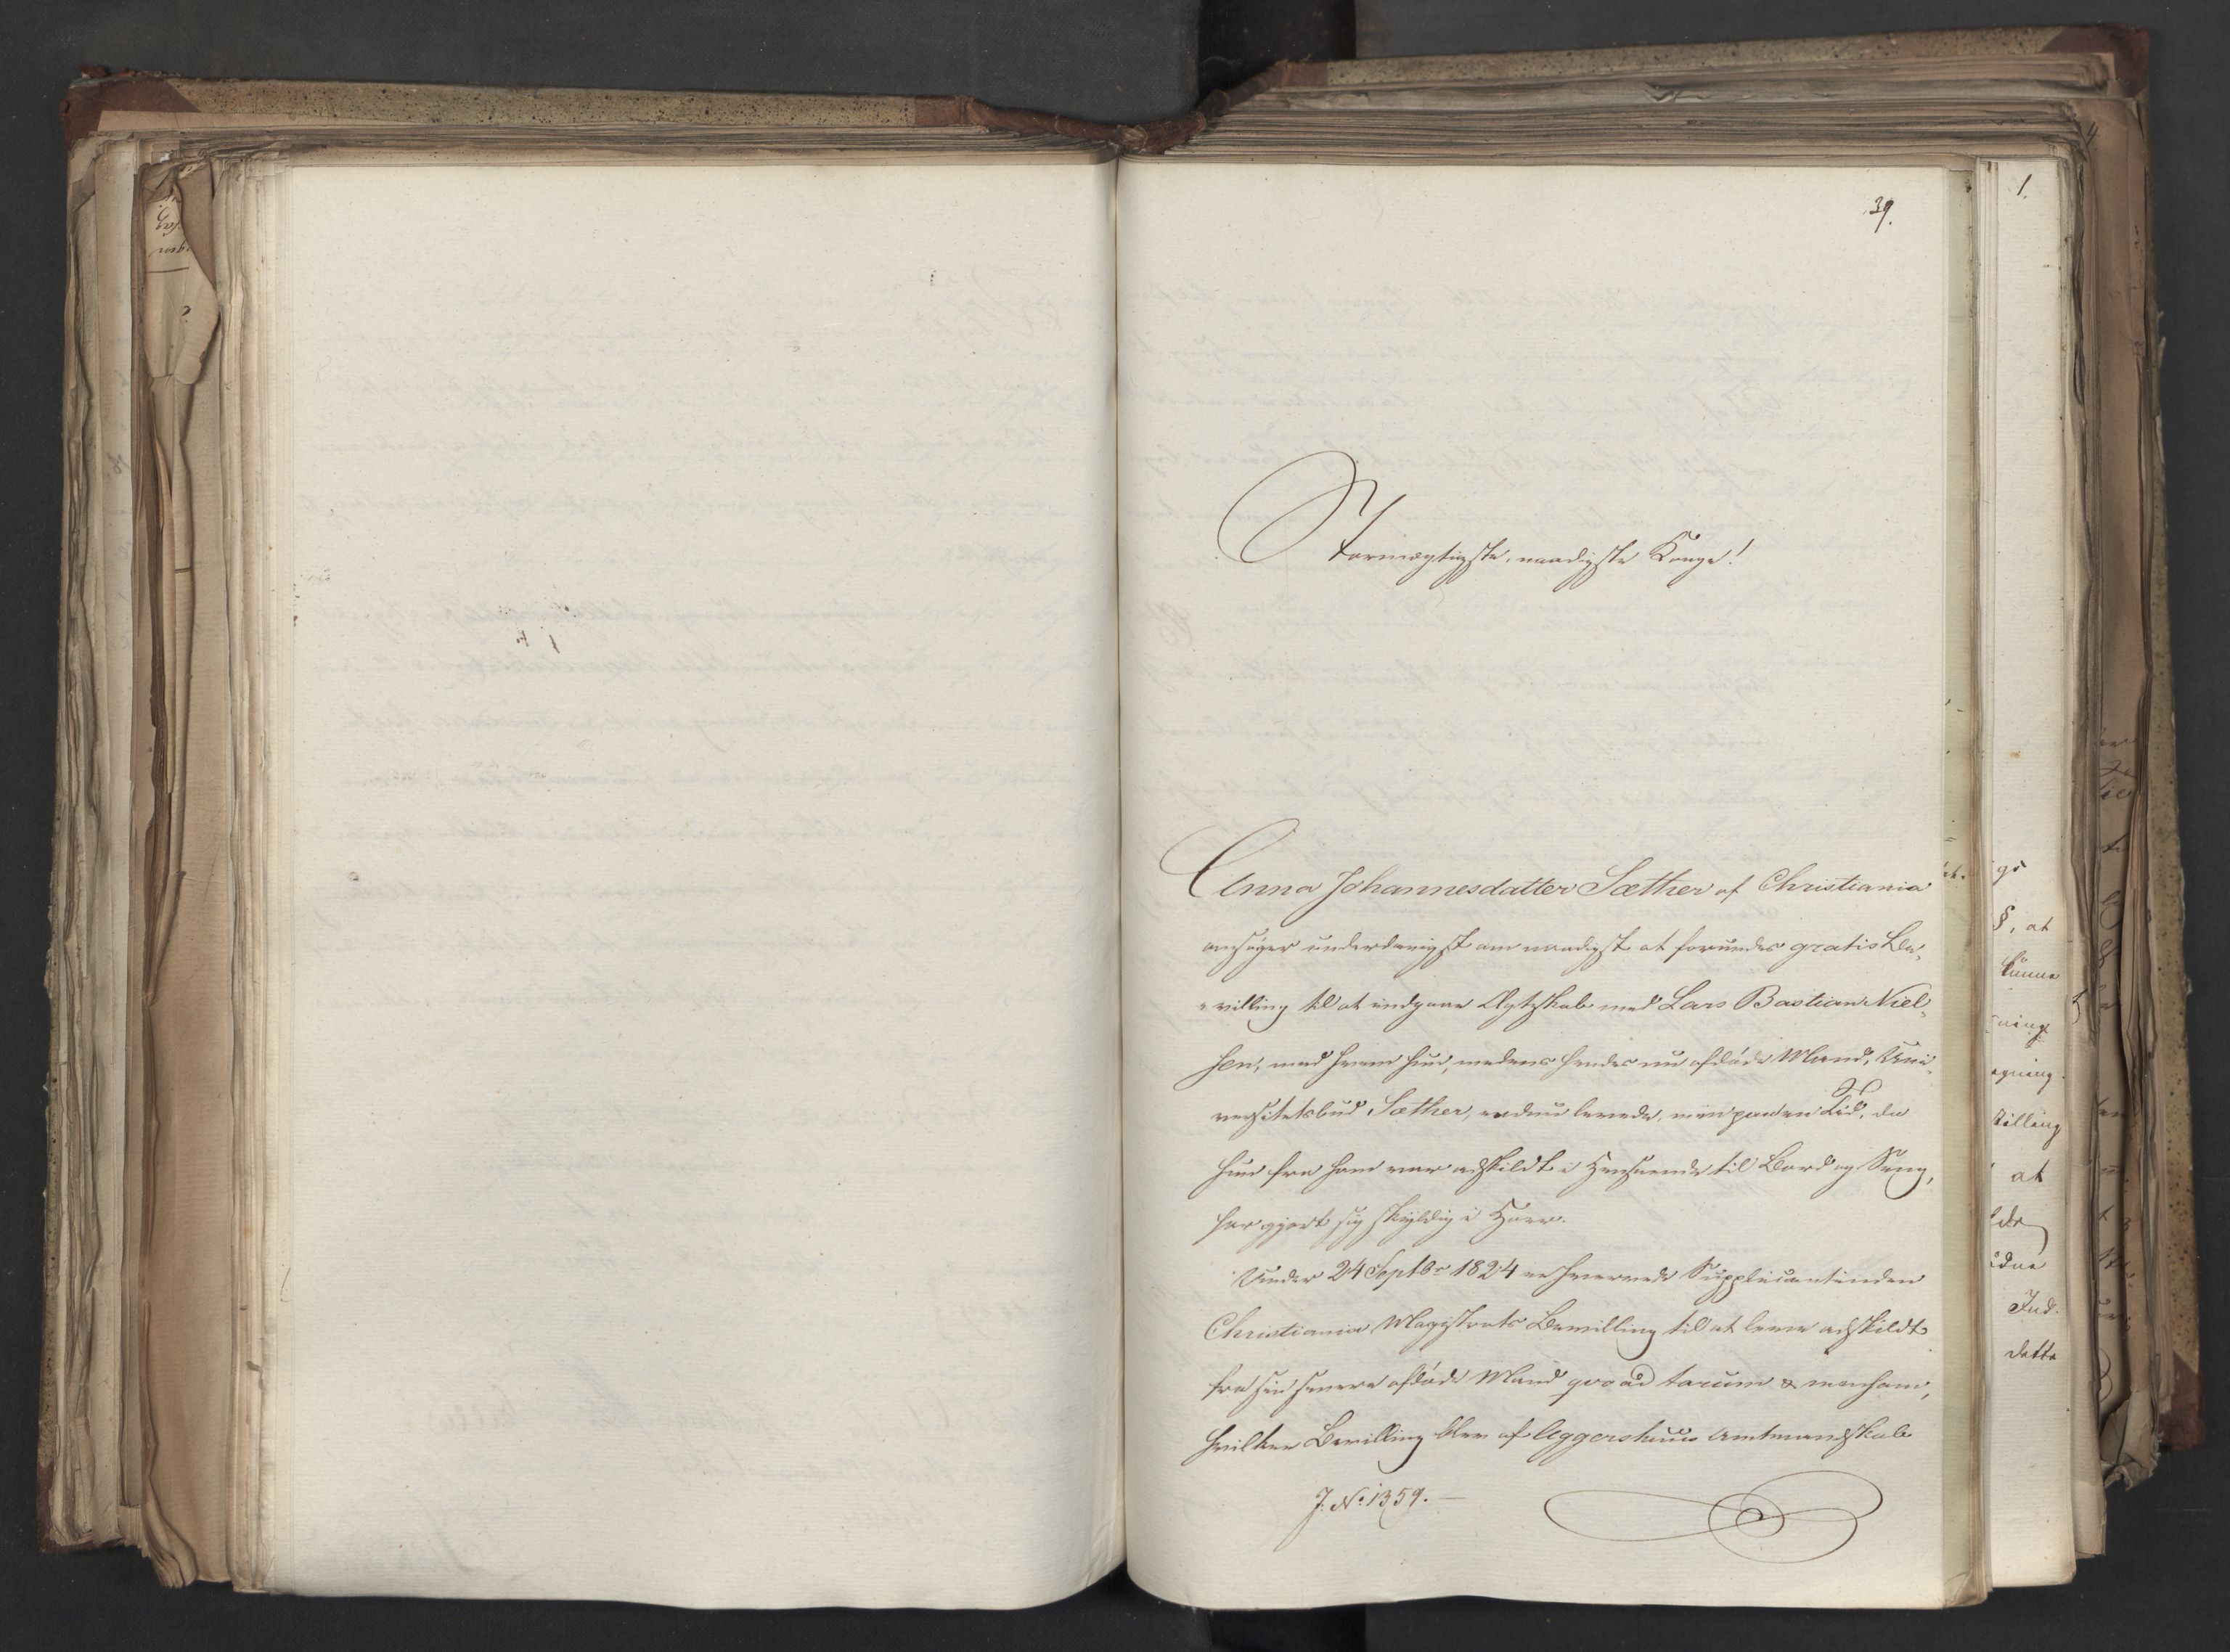 39.
Stormægtigste, naadigste Konge!
Anna Johannesdatter Sæther af Christiania
ansøger underdanigst om naadigst at forundes gratis Be„
„villing til at indgaae Ægteskab med Lars Bastian Niel„
sen, med hvem hun, medens hendes nu afdøde Mand, Uni„
versitetsbud Sæther, endnu levede, men paa en Tid, da
hun fra ham var adskildt i Henseende til Bord og Seng,
har gjort sig skyldig i Hoer.
Under 24 Septbr 1824 erhvervede Supplicantinden
Christiania Magistrats Bevilling til at leve adskildt
fra sin senere afdøde Mand qvoad torum & mensam,
hvilken Bevilling blev af Aggershuus Amtmandskab
J. No 1359. —
1.
gs
§, at
kunne
ning
gning
stilling
at
lde
dne
Ind.
dette